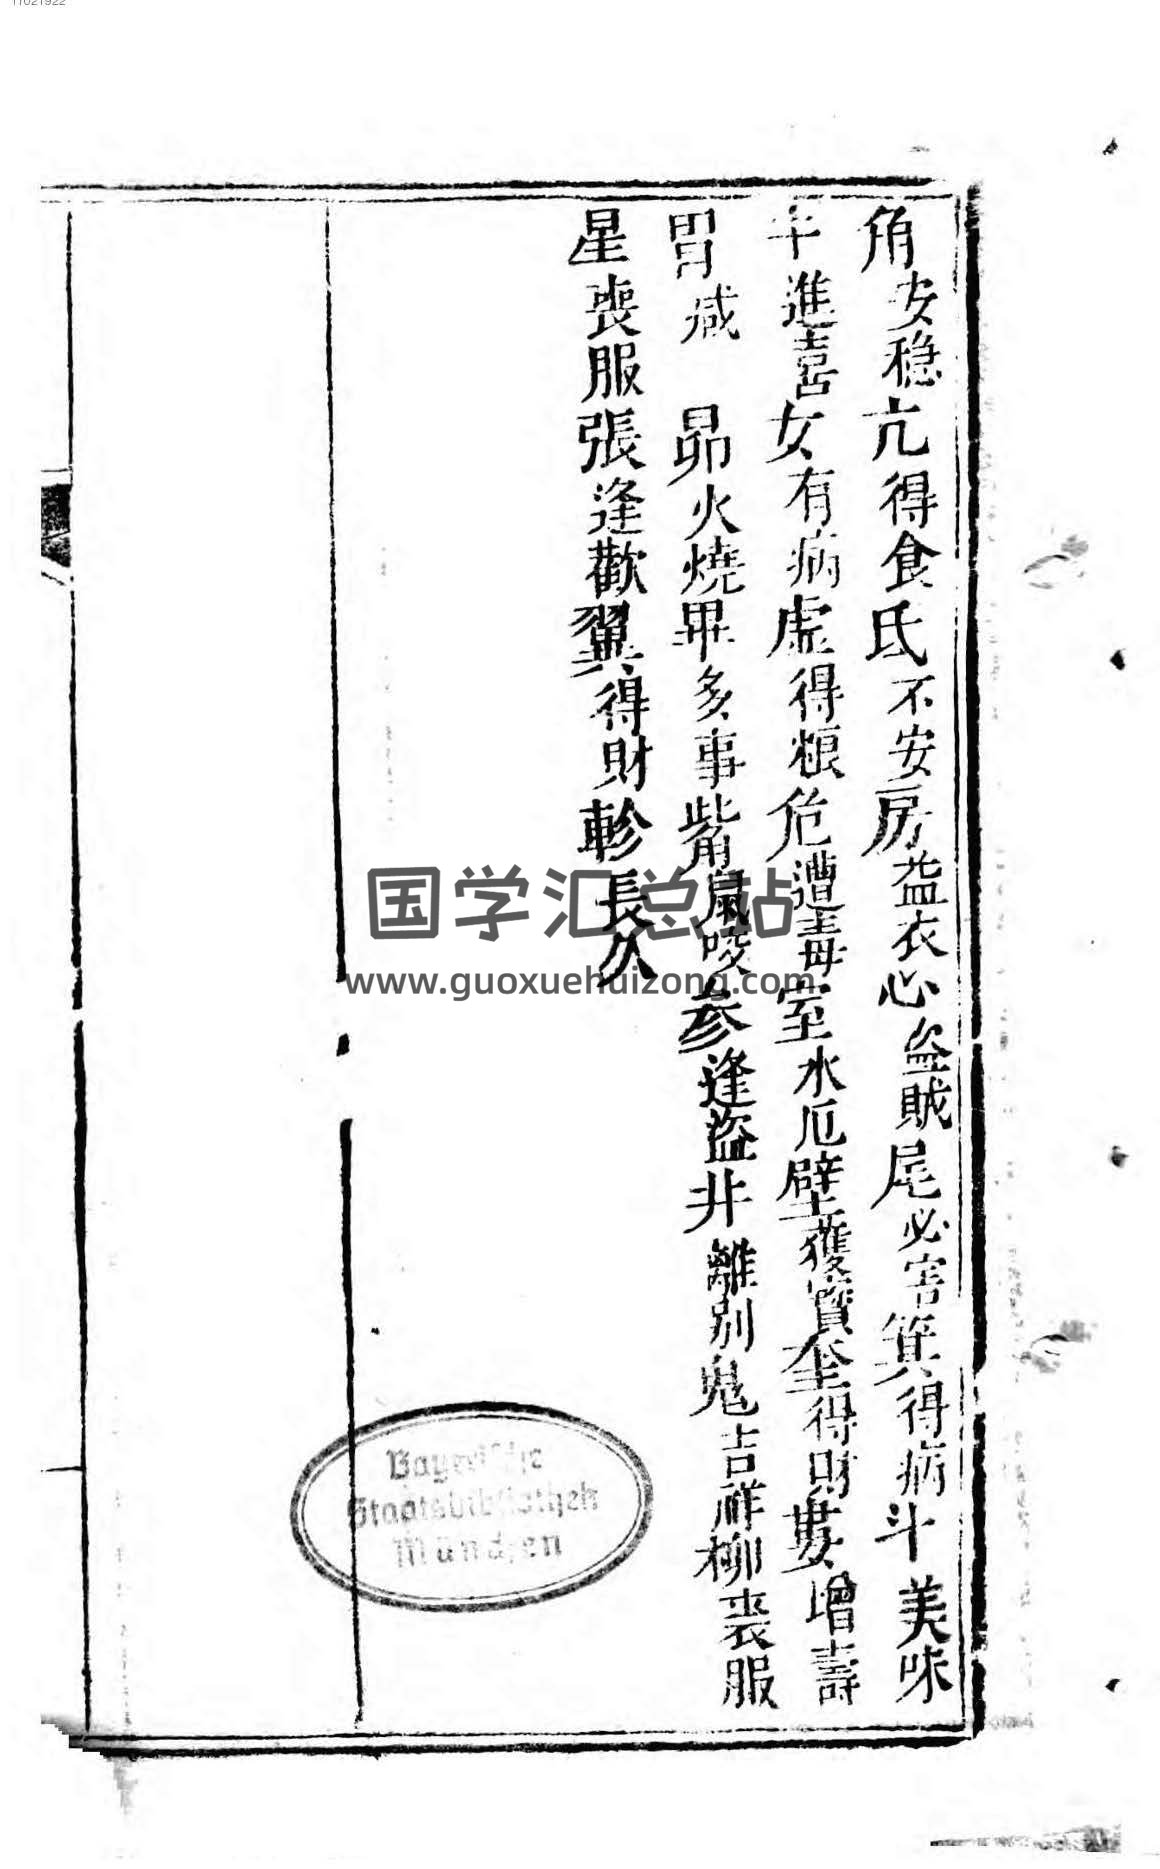 角安穩亢得食氐不安房盗衣心盗賊尾必害箕得病斗美味
牛進喜女有病虛得粮危遭毒室水厄壁獲寳奎得財婁增壽
胃减 昴火燒畢多事觜鼠咬参逢盗井離別鬼吉祥柳喪服
星喪服張逢歡翼得財軫長久
国学汇总站
www.guoxuehuizong.com
Bayerische
Staatsbibliothek
München